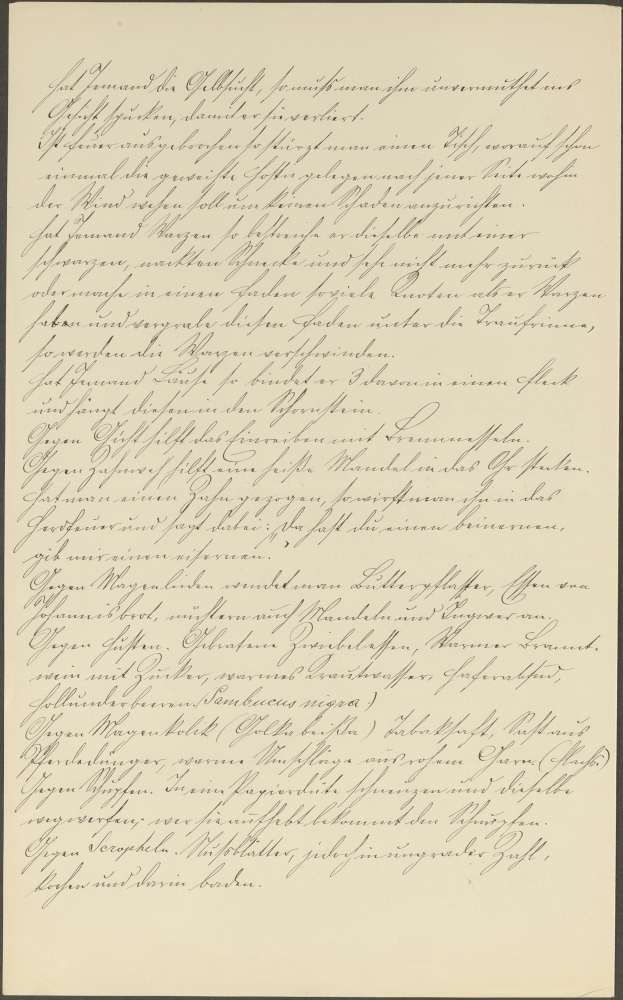 Hat Jemand die Gelbsucht, so muss man ihm unvermuthet ins
Gesicht spucken, damit er sie verliert.
Ist Feuer ausgebrochen so stürzt man einen Tisch, worauf schon
einmal die geweihte Hostie gelegen nach jener Seite wohin
der Wind wehen soll um keinen Schaden anzurichten.
Hat Jemand Warzen so bestreiche er dieselbe mit einer
schwarzen, nackten Schnecke und sehe nicht mehr zurück
oder mache in einen Faden soviele Knoten als er Warzen
haben und vergrabe diesen Faden unter die Traufrinne,
so werden die Warzen verschwinden.
Hat Jemand Läuse so bindet er 3 davon in einen Fleck
und hängt diesen in den Schornstein.
Gegen Gicht hilft das Einreiben mit Brennnesseln.
Gegen Zahnweh hilft eine heiße Mandel in das Ohr stecken.
Hat man einen Zahn gezogen, so wirft man ihn in das
Herdfeuer und sagt dabei: „Da hast du einen beinernen,
gib mir einen eisernen.“
Gegen Magenleiden wendet man Butterpflaster, Essen von
Johannisbrot, nüchtern auch Mandeln und Ingwer an.
Gegen Husten. Gebratene Zwiebel essen, Warmer Brannt-
wein mit Zucker, warmes Krautwasser, Haferabsud,
Hollunderbeeren (Sambucus nigra)
Gegen Magenkolik (Golka beißta) Tabaksaft, Saft aus
Pferdedünger, warme Umschläge aus rohem Garn (Flachs)
Gegen Schupfen. In eine Papierdüte schneuzen und dieselbe
wegwerfen; wer sie aufhebt bekommt den Schnupfen.
Gegen Scropheln. Nussblätter, jedoch in ungrader Zahl,
kochen und darin baden.